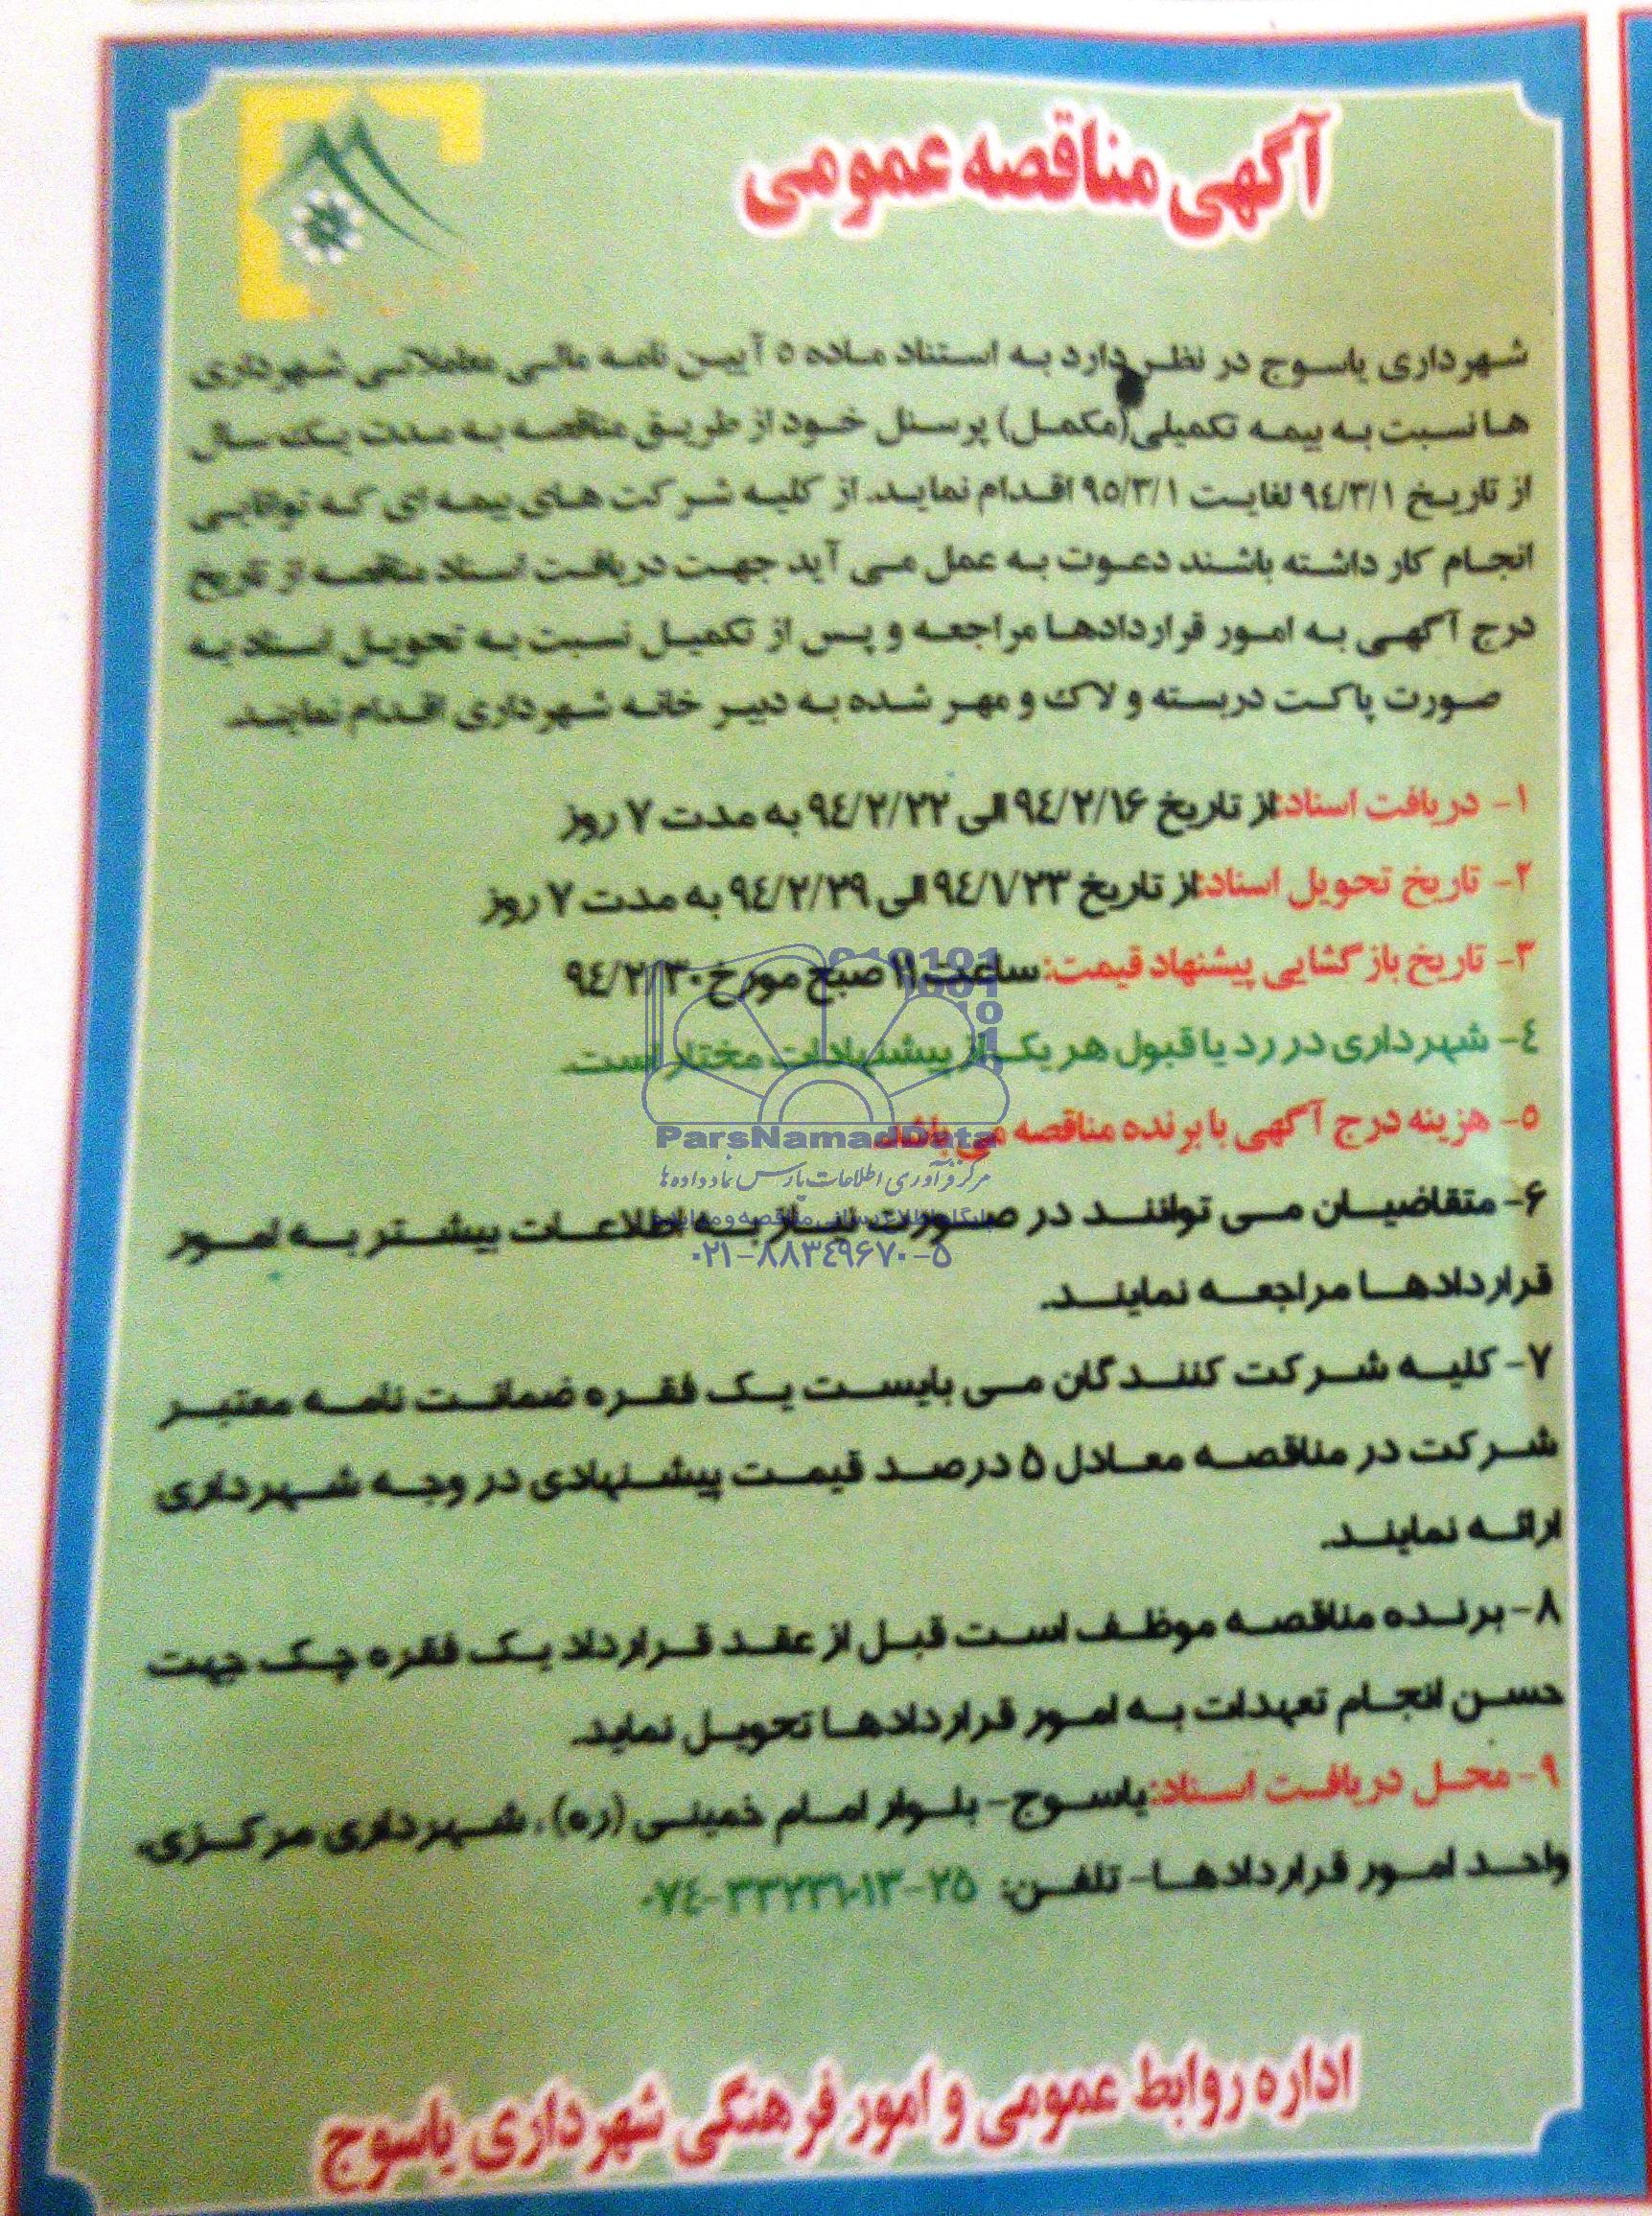 آگهی مناقصه عمومی
شهرداری یاسوج در نظر دارد به استناد ماده ۵ آیین نامه مالی معاملاتی شهرداری
ها نسبت به بیمه تکمیلی (مکمل) پرسنل خود از طریق مناقصه به مدت یک سال
از تاریخ ۹۴/۳/۱ لغایت ۹۵/۳/۱ اقدام نماید. از کلیه شرکت های بیمه ای که توانایی
انجام کار داشته باشند دعوت به عمل می آید جهت دریافت اسناد مناقصه از تاریخ
درج آگهی به امور قراردادها مراجعه و پس از تکمیل نسبت به تحویل اسناد به
صورت پاکت دربسته و لاک و مهر شده به دبیر خانه شهرداری اقدام نمایند.
۱- دریافت اسناد: از تاریخ ۹۴/۲/۱۶ الی ۹۴/۲/۲۲ به مدت ۷ روز
۲- تاریخ تحویل اسناد: از تاریخ ۹۴/۱/۲۳ الی ۹۴/۲/۲۹ به مدت ۷ روز
۳- تاریخ بازگشایی پیشنهاد قیمت: ساعت ۱۱ صبح مورخ ۹۴/۲/۳۰
۴- شهرداری در رد یا قبول هر یک از پیشنهادات مختار است.
۵- هزینه درج آگهی با برنده مناقصه می باشد.
ParsNamadData
مرکز فرآوری اطلاعات پارس نماد داده ها
۶- متقاضیان می توانند در صورت نیاز به اطلاعات بیشتر به امور
پایگاه اطلاع رسانی مناقصه و مزایده
۰۲۱-۸۸۳۴۹۶۷۰-۵
قراردادها مراجعه نمایند.
۷- کلیه شرکت کنندگان می بایست یک فقره ضمانت نامه معتبر
شرکت در مناقصه معادل ۵ درصد قیمت پیشنهادی در وجه شهرداری
ارائه نمایند.
۸- برنده مناقصه موظف است قبل از عقد قرارداد یک فقره چک جهت
حسن انجام تعهدات به امور قراردادها تحویل نماید.
۹- محل دریافت اسناد: یاسوج- بلوار امام خمینی (ره)، شهرداری مرکزی،
واحد امور قراردادها- تلفن:
اداره روابط عمومی و امور فرهنگی شهرداری یاسوج